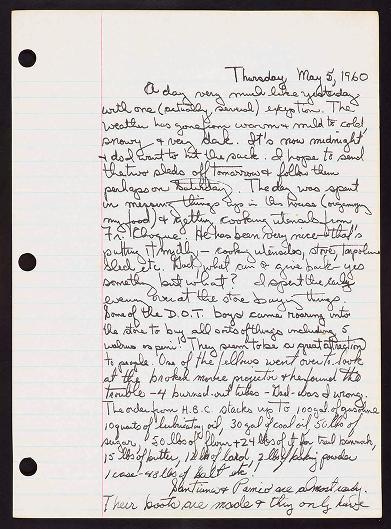 Thursday, May 5, 1960
A day very much like yesterday
with one (actually, several) exception. The
weather has gone from warm & mild to cold
snowy & very dark. It's now midnight
& do I want to hit the sack. I hope to send
the two sleds off tomorrow & follow them
perhaps on Saturday. The day was spent
in messing things up in the house (organizing
my food) & getting cooking utensils from
Fr. He has been very nice – that's
putting it mildly – cooking utensils, stove, tarpoline
sled etc. God, what can I give back – yes
something but what? I spent the early
evening over at the store buying things.
Some of the D.O.T. boys came roaring into
the store to buy all sorts of things including 5
walrus . They seem to be a great attraction
to people. One of the fellows went over to look
at the broken movie projector & he found the
trouble – 4 burned out tubes – Dad was wrong.
The order from H.B.C. stacks up to 100 gal of gasoline
10 quarts of lubricating oil, 30 gal of coal oil, 50 lbs of
sugar, 50 lbs of flour & 24 lbs of it for trail bannock,
15 lbs of butter, 12 lbs of lard, 2 lbs of baking powder
1 case – 48 lbs of etc.
& are almost ready.
Their boots are made & they only have